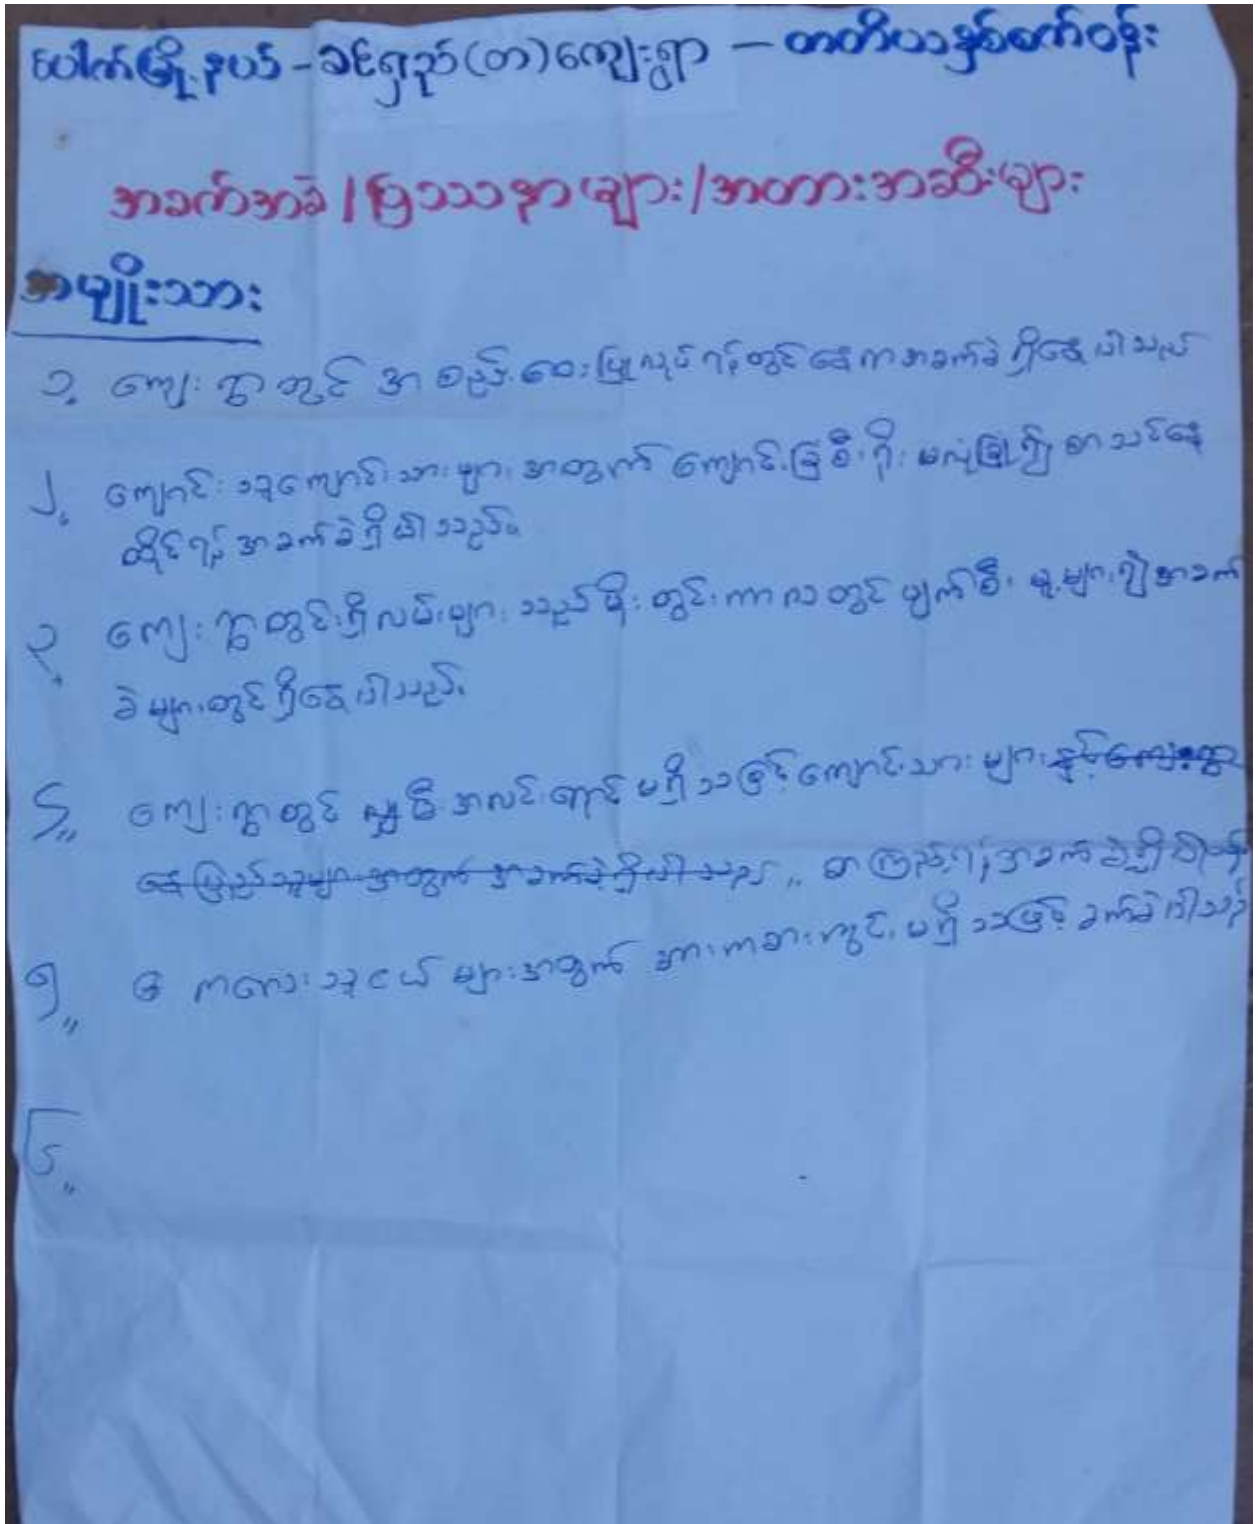 ပေါက်မြို့နယ် - ခင်ရှည်(တ)ကျေးရွာ - တတိယနှစ်စက်ဝန်း
အခက်အခဲ/ပြဿနာများ/အတားအဆီးများ
အမျိုးသား
၁. ကျေးရွာတွင် အစည်းဝေးပြုလုပ်ရန်တွင်နေကာအခက်ခဲရှိနေပါသည်
၂. ကျောင်းသူကျောင်းသားများအတွက် ကျောင်းခြံစီးရိုးမလုံခြုံ၍ စာသင်နေ
ထိုင်ရန်အခက်ခဲရှိပါသည်။
၃. ကျေးရွာတွင်းရှိလမ်းများသည်မိုးတွင်းကာလတွင်ပျက်စီးမှုများ၍အခက်
ခဲများတွင်ရှိနေပါသည်။
၄။ ကျေးရွာတွင် လျှပ်စီးအလင်းရောင်မရှိသဖြင့်ကျောင်းသားများနှင့်ကျေးရွာ
နေပြည်သူများအတွက် အခက်ခဲရှိပါသည်။ စာကြည့်ရန်အခက်ခဲရှိပါသည်
၅။ ကလေးသူငယ်များအတွက် အားကစားကွင်းမရှိသဖြင့် ခက်ခဲပါသည်
၆။